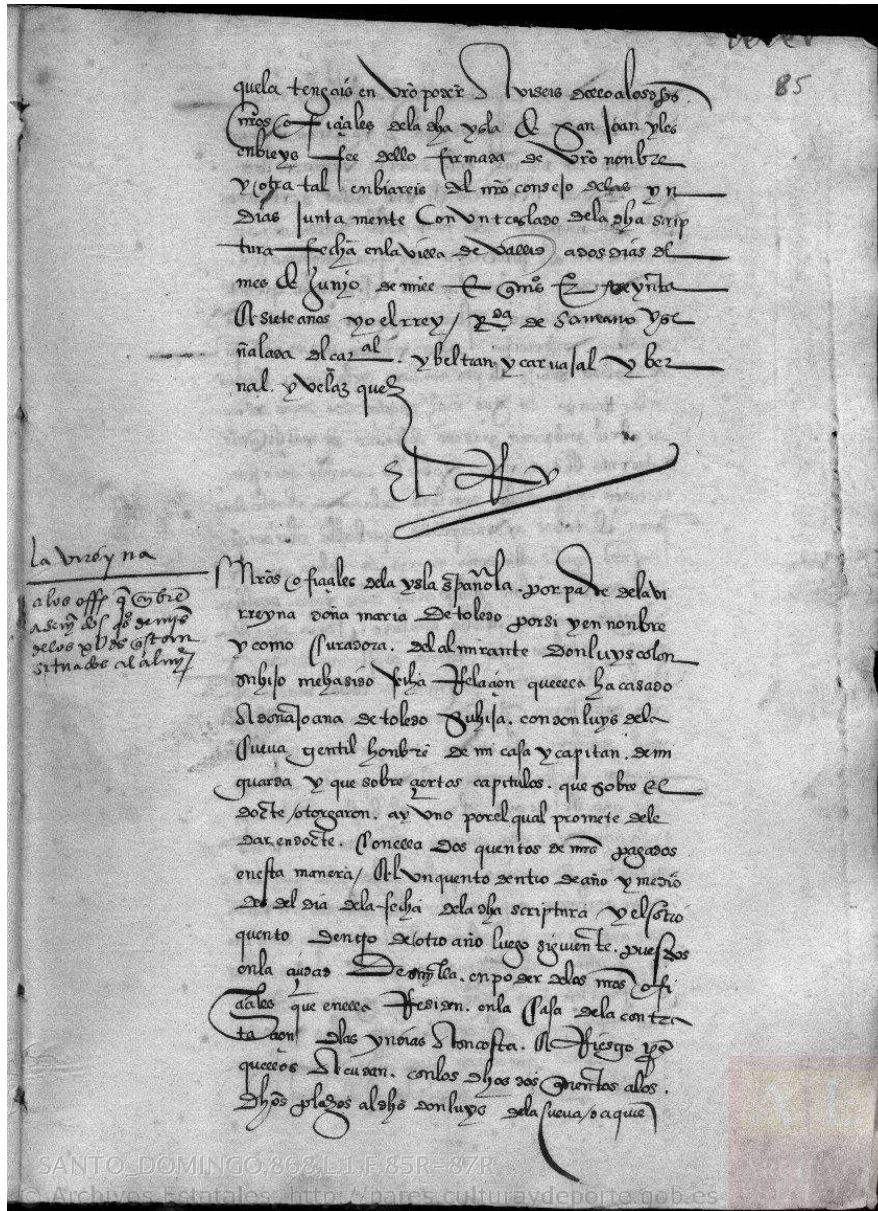 85
que la tengais en vr̃o poder Aviseis dello a los dhõs
nr̃os officiales de la dha ysla de San Joan y les
enbieys fee dello firmada de vr̃o nonbre
y otra tal enbiareis al nr̃o consejo delas yn
dias junta mente Con vn treslado dela dha scrip
tura fecha en la villa de vallid a dos dias del
mes de Junjo de mill E qujºs E treynta
A siete años yo el rrey / Rda de Samano y se
ñalada del caral. y beltran y carvajal y ber
nal. y velaz quez
El Rey
la vireyna
Nr̃os officiales dela ysla española. por parte dela vi
rreyna doña maria De toledo por si y en nonbre
y como Curadora. del almirante don luys colon
su hijo me ha sido fecha Relaçion que ella ha casado
A doña Joana de toledo Su hija. con don luys dela
Cueva gentil honbre de mi casa y capitan. de mi
guarda y que sobre çiertos capitulos. que sobre El
docte / otorgaron. ay uno por el qual promete dele
dar en docte. Con ella dos quentos de mr̃s pagados
en esta manera / El vn quento dentro de año y medio
des del dia dela fecha dela dha scriptura / y el otro
quento dentro de otro año luego siguiente. puestos
en la çiudad De sevylla. en poder delos nr̃os offi
ciales que en ella Residen. en la Casa dela contra
taçion delas yndias A su costa. A Riesgo pª
que ellos Acudan. con los dhos dos quentos a los.
dhõs plazos al dhõ don luys dela Cueva / o a quien
SANTO_DOMINGO,868,L.1,F.85R-87R
© Archivos Estatales, http://pares.culturaydeporte.gob.es